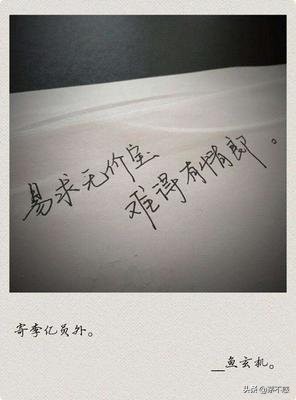 易求无价宝
难得有情郎。
寄李亿员外。
__鱼玄机。